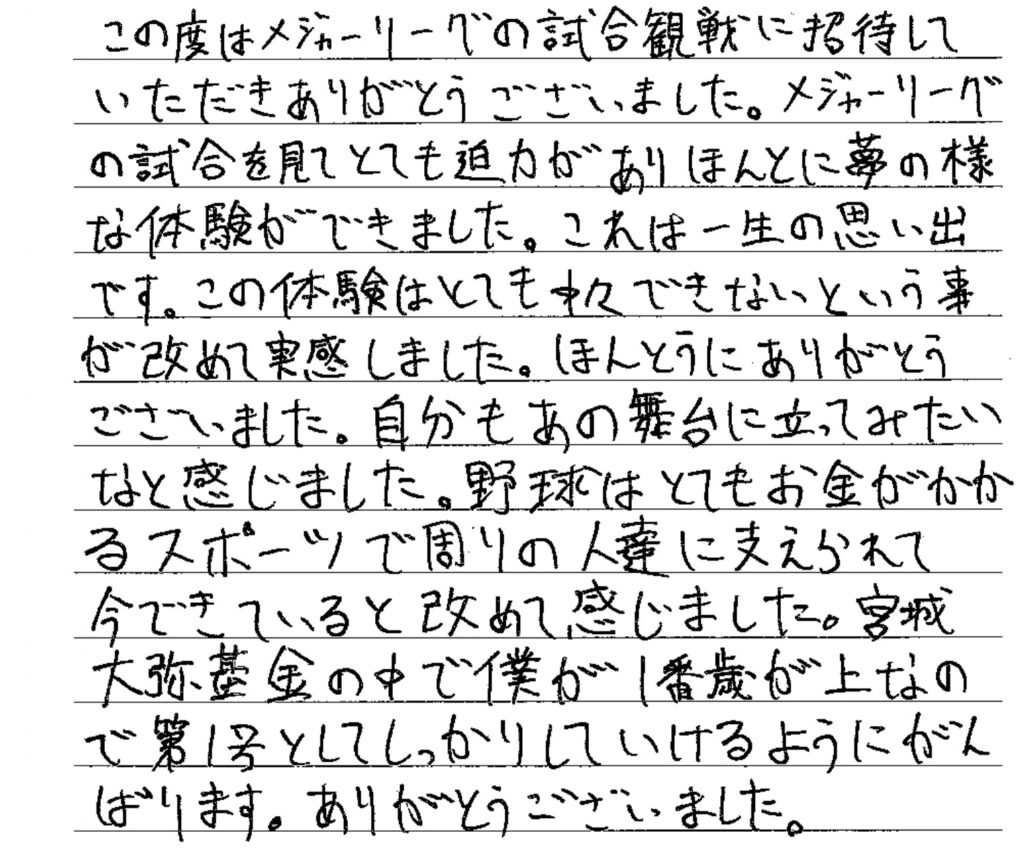 この度はメジャーリーグの試合観戦に招待して
いただきありがとうございました。メジャーリーグ
の試合を見てとても迫力がありほんとに夢の様
な体験ができました。これは一生の思い出
です。この体験はとても中々できないという事
が改めて実感しました。ほんとうにありがとう
ございました。自分もあの舞台に立ってみたい
なと感じました。野球はとてもお金がかか
るスポーツで周りの人達に支えられて
今できていると改めて感じました。宮城
大弥基金の中で僕が1番歳が上なの
で第1号としてしっかりしていけるようにがん
ばります。ありがとうございました。